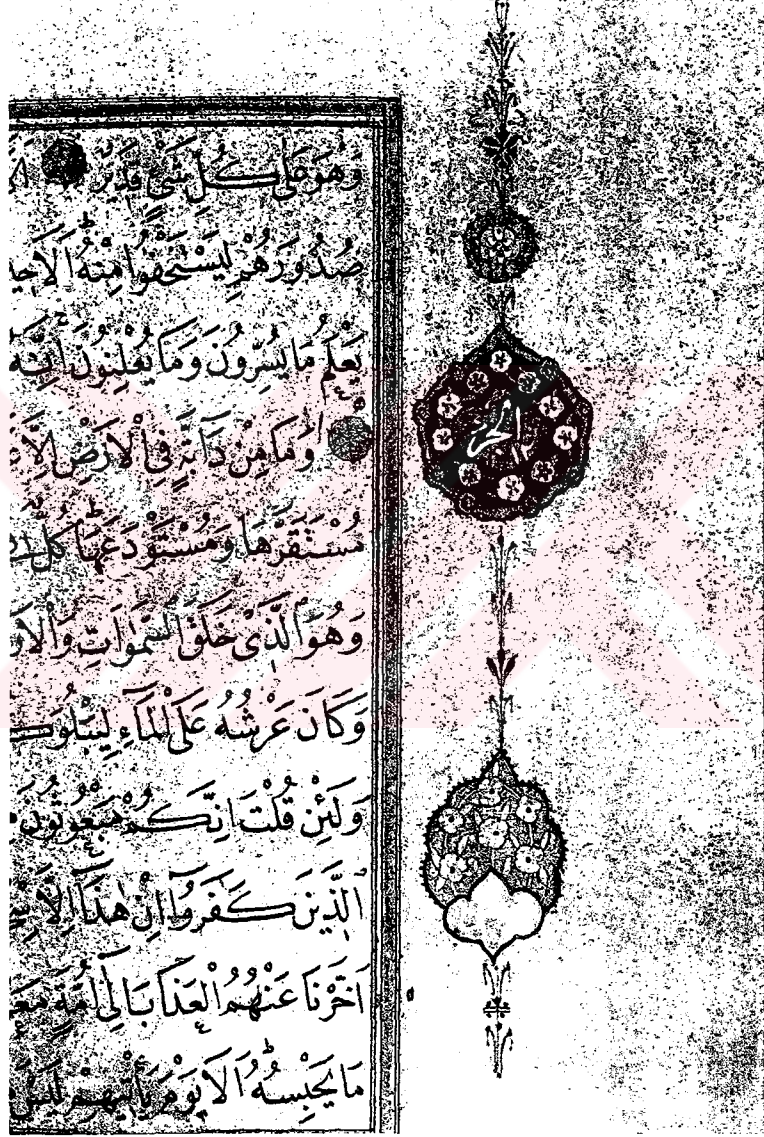 وَهُوَ عَلٰى كُلِّ شَيْءٍ قَدِيرٌ
صُدُورَهُمْ لِيَسْتَخْفُوا مِنْهُ اَلَا حِي
يَعْلَمُ مَا يُسِرُّونَ وَمَا يُعْلِنُونَ اِنَّهُ
وَمَا مِنْ دَآبَّةٍ فِي الْاَرْضِ اِلَّا
مُسْتَقَرَّهَا وَمُسْتَوْدَعَهَا كُلٌّ
وَهُوَ الَّذِي خَلَقَ السَّمٰوَاتِ وَالْاَر
وَكَانَ عَرْشُهُ عَلَى الْمَآءِ لِيَبْلُوَك
وَلَئِنْ قُلْتَ اِنَّكُمْ مَبْعُوثُونَ
الَّذِينَ كَفَرُوا اِنْ هٰذَا اِلَّا
اَخَّرْنَا عَنْهُمُ الْعَذَابَ اِلٰى اُمَّةٍ مَعْ
مَا يَحْبِسُهُ اَلَا يَوْمَ يَأْتِيهِمْ لَيْسَ